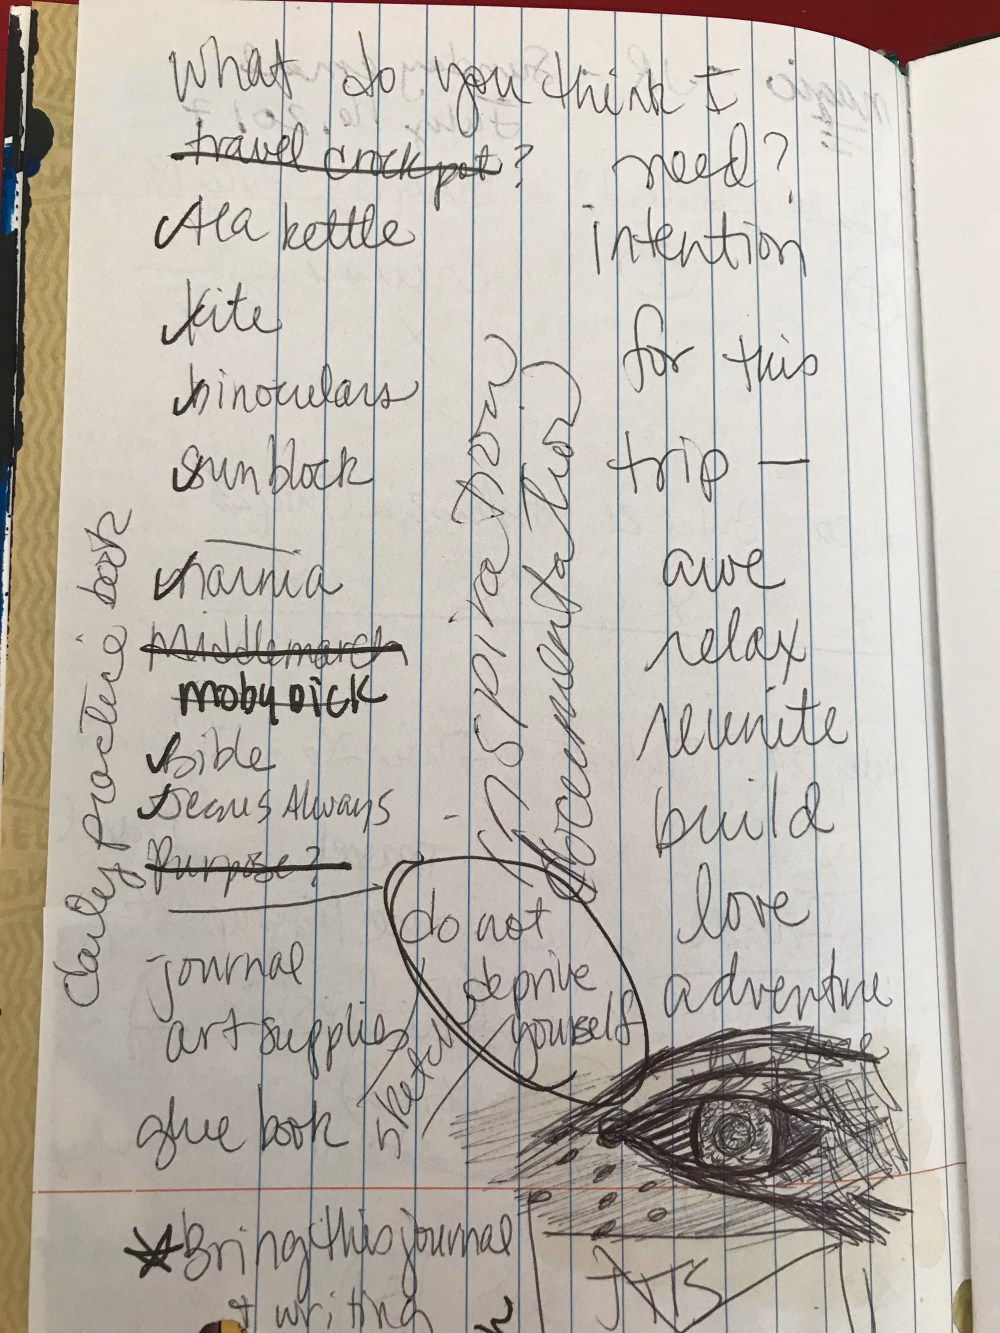 What do you think I
need?
travel crockpot?
tea kettle
kite
binoculars
sunblock
narnia
Middlemarch
moby dick
bible
Jesus Always
Purpose?
journal
art supplies
glue book
*Bring this journal
+ writing
daily practice book
inspiration
documentation
do not
deprive
yourself
sketch
intention
for this
trip —
awe
relax
reunite
build
love
adventure
JTS